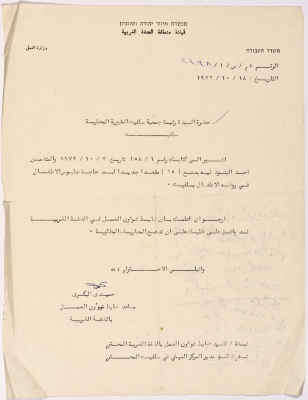 מפקדת אזור יהודה ושומרון
قيادة منطقة الضفة الغربية
משרד העבודה
وزارة العمل
التاريخ : ١٨ / ١٠ / ١٩٧٢
حضرة السيدة رئيسة جمعية سلفيت الخيرية المحترمة
سلفيت
اشير الى كتابك رقم ١٥٨/١ تاريخ ٧ / ١٠ / ١٩٧٢ والمتضمن
احد البنود فيه بمنح (١٥) مقعدا جديدا لسد حاجة جلوس الاطفال
في روضة الاطفال بسلفيت
ارجو ان اعلمك بان ضابط شؤون العمل في الضفة الغربية
قد وافق على طلبك على ان تدفع المصاريف المطلوبة
واقبلي الاحترام
حميدي البكري
مساعد ضابط شؤون العمل
بالضفة الغربية
نسخة / للسيد ضابط شؤون العمل بالضفة الغربية المحترم
نسخة / للسيد مدير المركز المهني في سلفيت المحترم